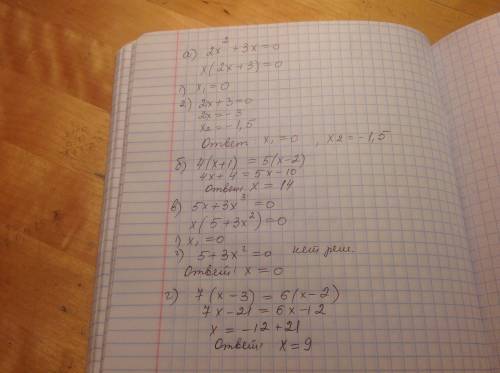 а) 2x² + 3x = 0
x(2x+3) = 0
1) x₁ = 0
2) 2x+3 = 0
2x = -3
x₂ = -1,5
Ответ x₁ = 0 , x₂ = -1,5
б) 4(x+1) = 5(x-2)
4x + 4 = 5x - 10
Ответ: x = 14
в) 5x + 3x³ = 0
x(5+3x²) = 0
1) x₁ = 0
2) 5+3x² = 0 нет реше.
Ответ: x = 0
г) 7(x-3) = 6(x-2)
7x - 21 = 6x - 12
x = -12 + 21
Ответ: x = 9